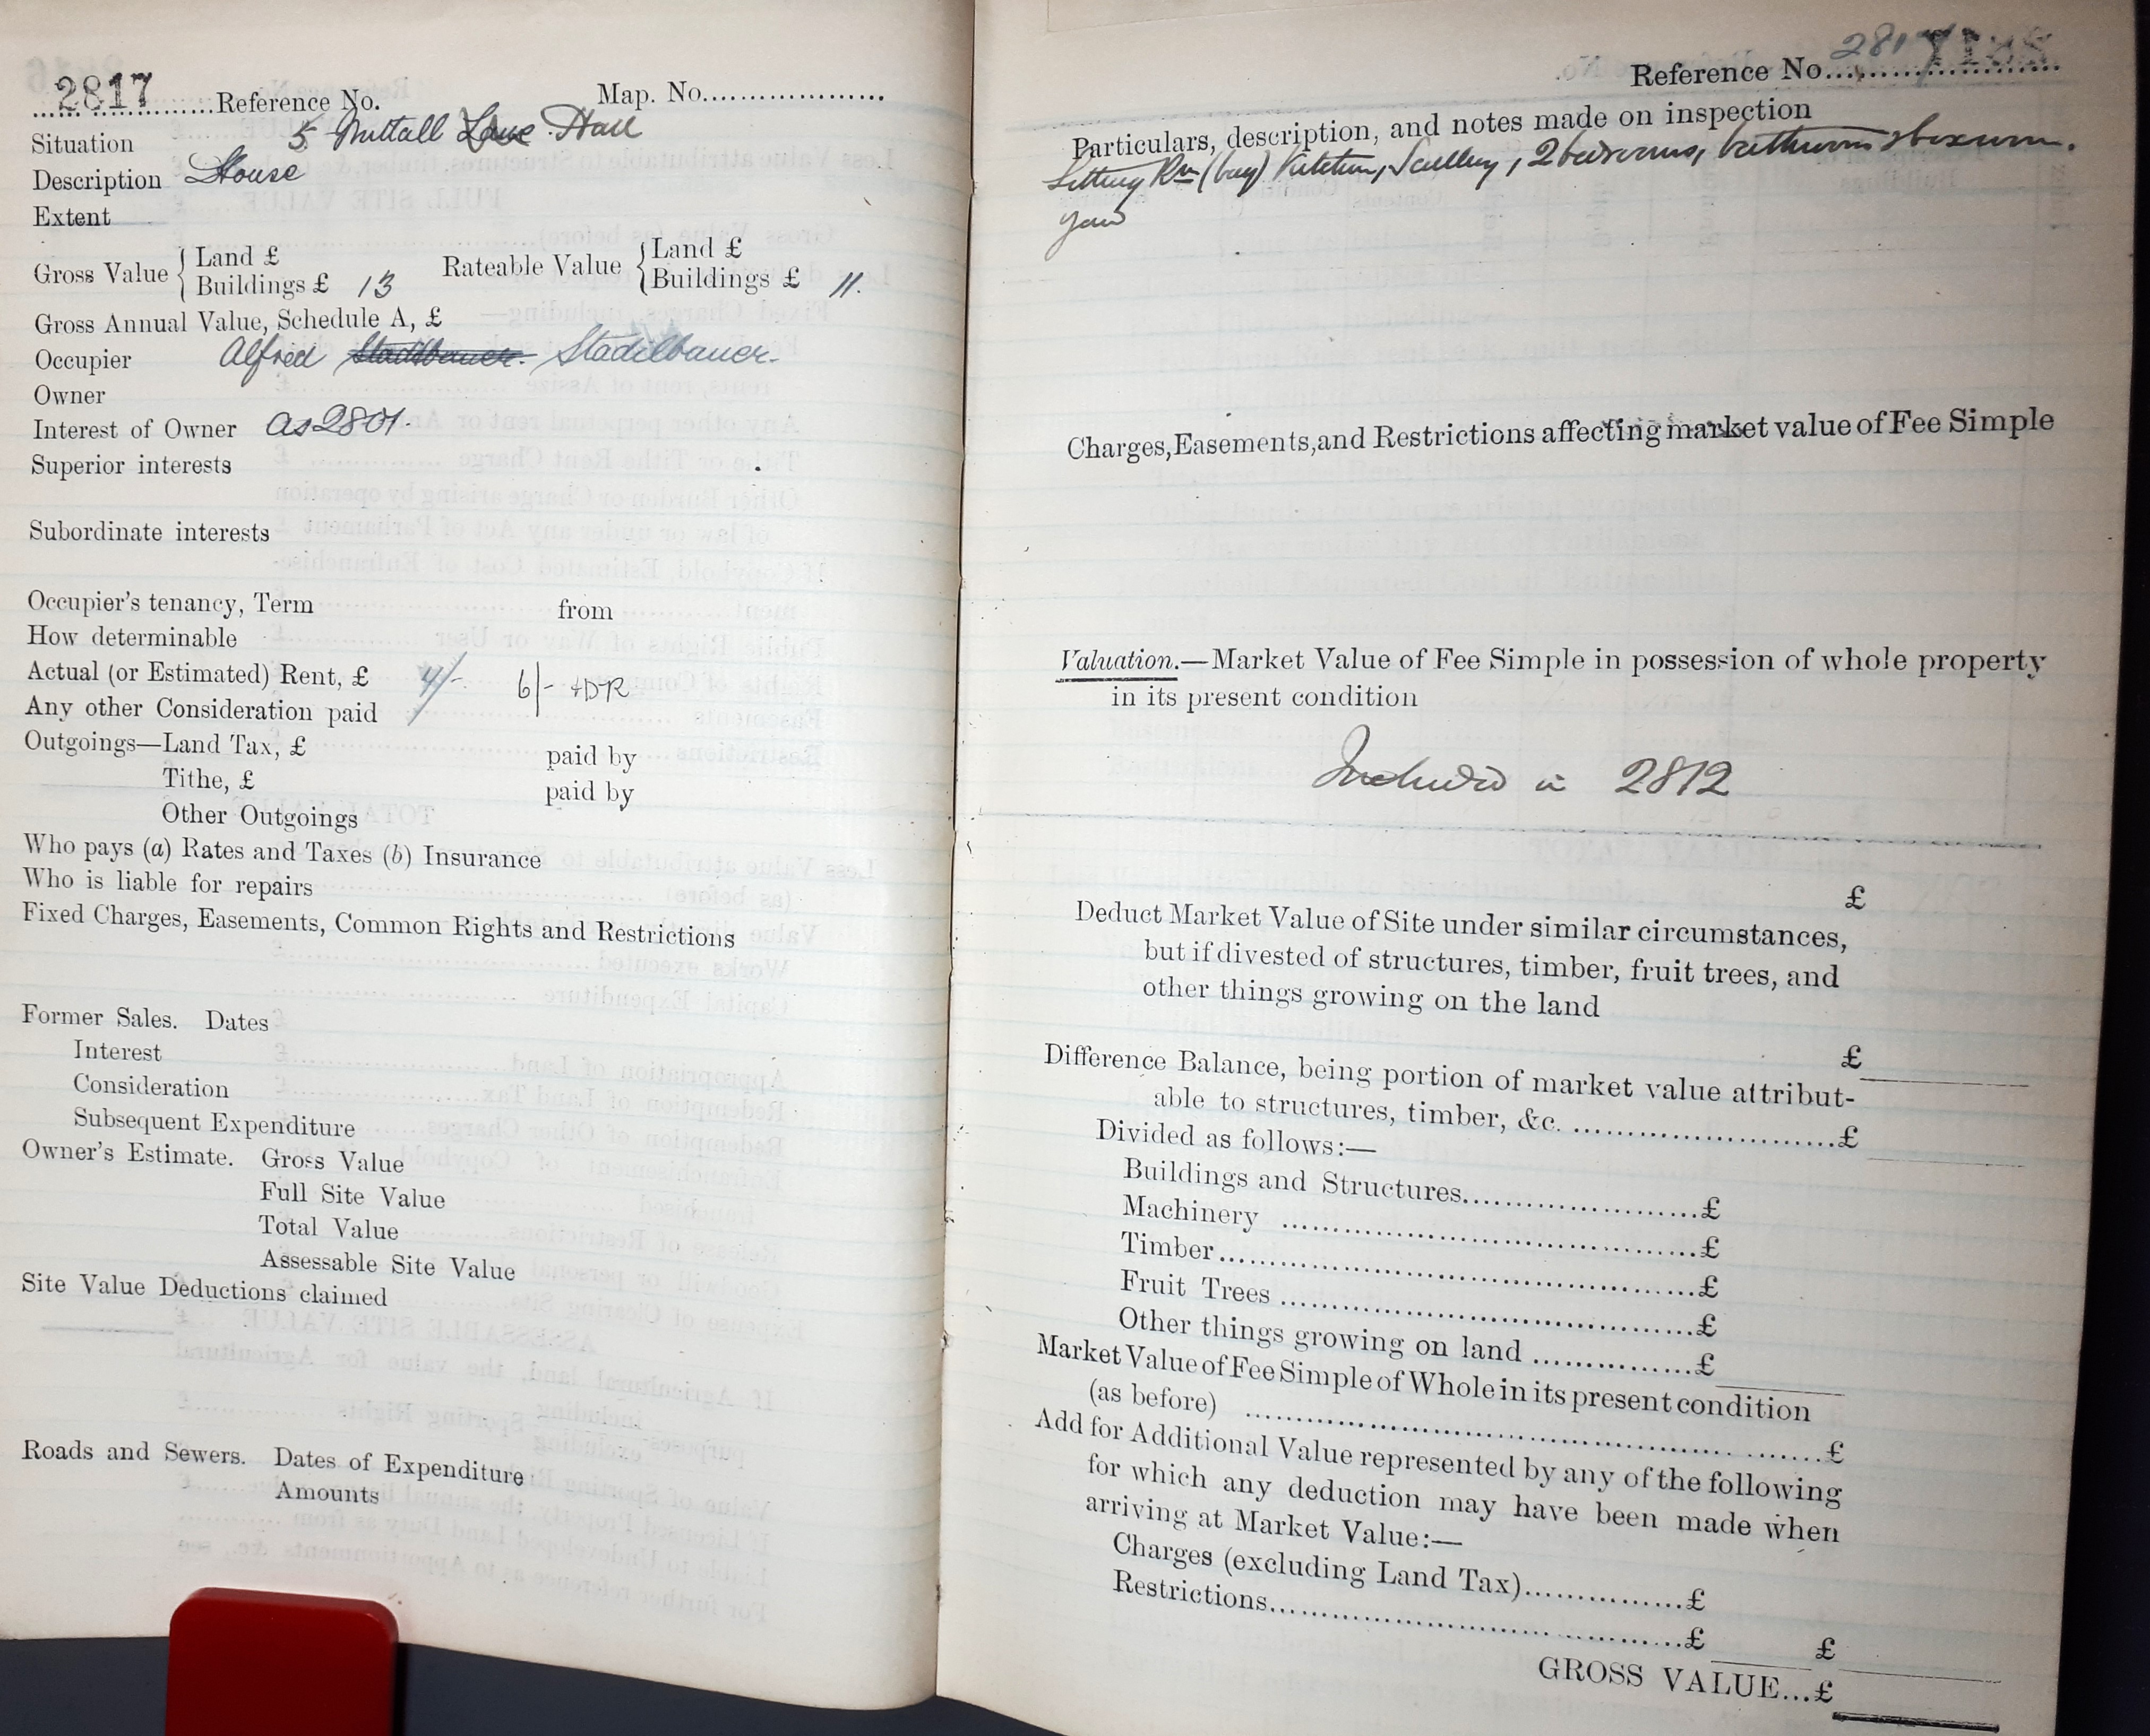 2817 Reference No. Map. No.
Situation 5 Nuttall Lane Hall
Description House
Extent
Gross Value { Land £
Buildings £ 13
Rateable Value { Land £
Buildings £ 11.
Gross Annual Value, Schedule A, £
Occupier Alfred Stadilbauer.
Owner
Interest of Owner as 2801.
Superior interests
Subordinate interests
Occupier's tenancy, Term from
How determinable
Actual (or Estimated) Rent, £ 4/- 6/- + DR
Any other Consideration paid
Outgoings—Land Tax, £ paid by
Tithe, £ paid by
Other Outgoings
Who pays (a) Rates and Taxes (b) Insurance
Who is liable for repairs
Fixed Charges, Easements, Common Rights and Restrictions
Former Sales. Dates
Interest
Consideration
Subsequent Expenditure
Owner's Estimate. Gross Value
Full Site Value
Total Value
Assessable Site Value
Site Value Deductions claimed
Roads and Sewers. Dates of Expenditure
Amounts
Reference No. 2817
Particulars, description, and notes made on inspection
Sitting Rm (bay) Kitchen, Scullery, 2 bedrooms, bathroom & boxroom.
yard
Charges, Easements, and Restrictions affecting market value of Fee Simple
Valuation.—Market Value of Fee Simple in possession of whole property
in its present condition
Included in 2812
£
Deduct Market Value of Site under similar circumstances,
but if divested of structures, timber, fruit trees, and
other things growing on the land
£
Difference Balance, being portion of market value attribut-
able to structures, timber, &c. £
Divided as follows:—
Buildings and Structures £
Machinery £
Timber £
Fruit Trees £
Other things growing on land £
Market Value of Fee Simple of Whole in its present condition
(as before) £
Add for Additional Value represented by any of the following
for which any deduction may have been made when
arriving at Market Value:—
Charges (excluding Land Tax) £
Restrictions £ £
GROSS VALUE...£